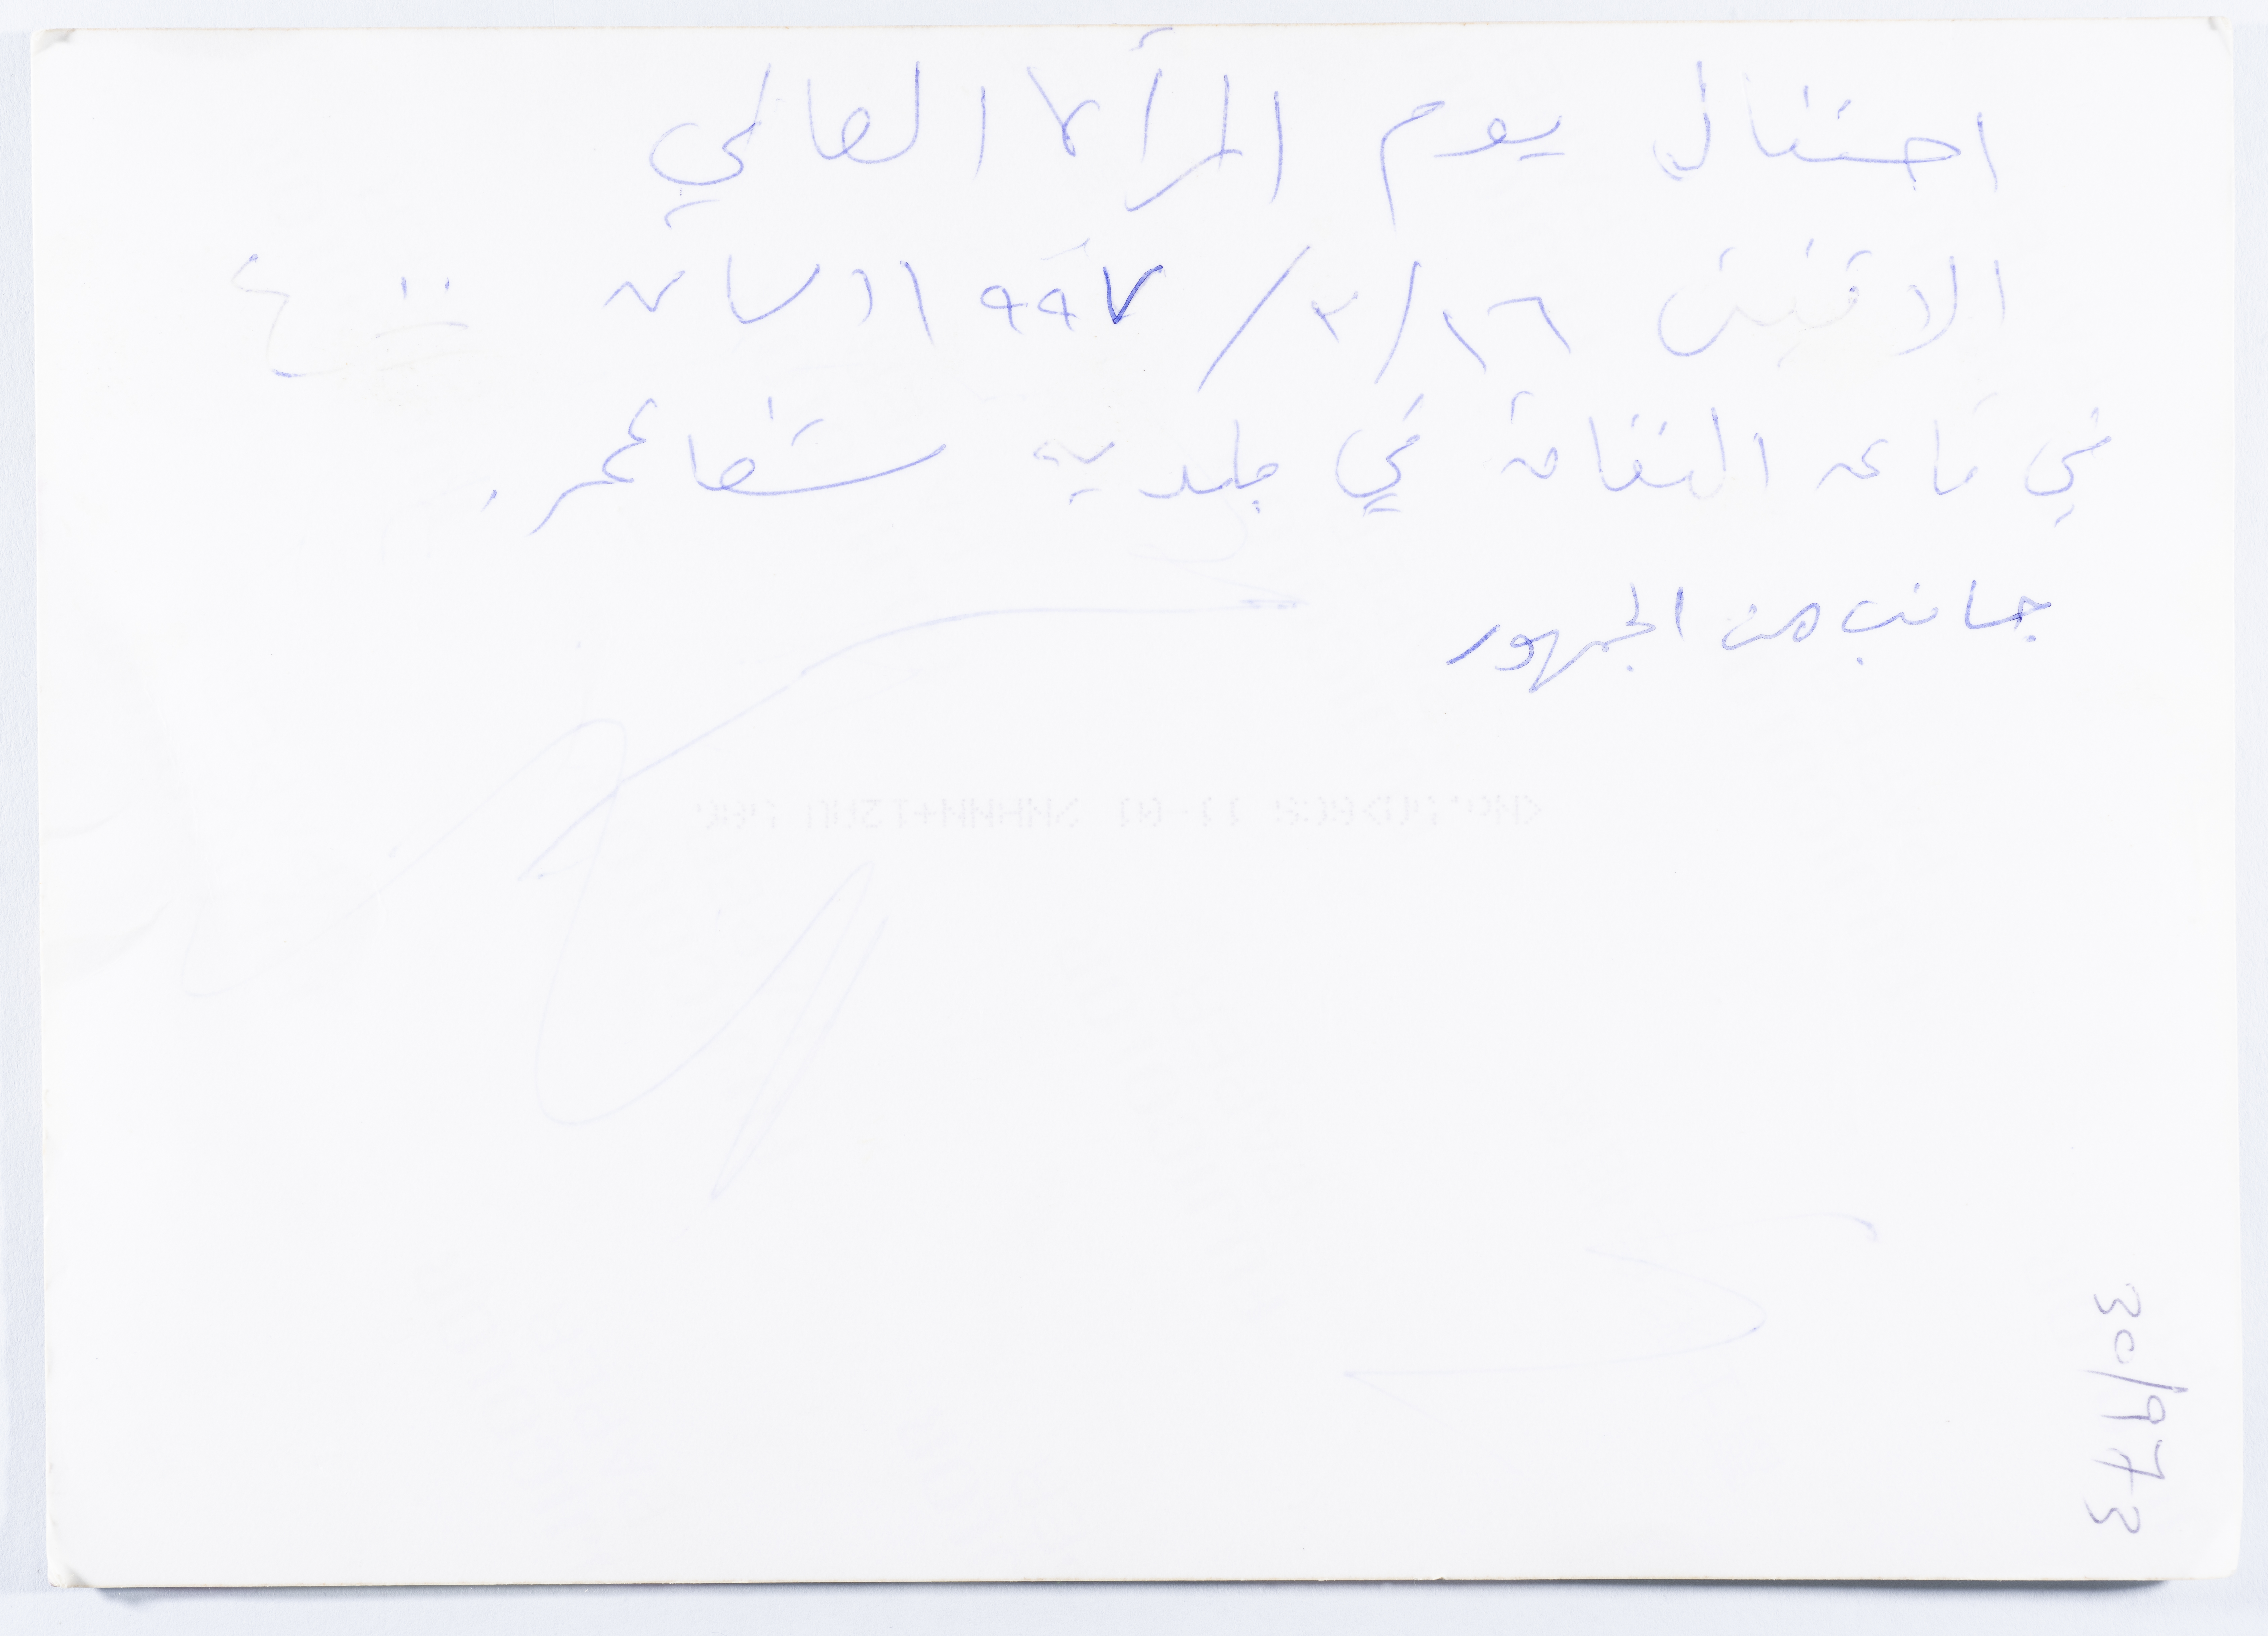 احتفال يوم المرأة العالمي
الاثنين ١٦/٣/١٩٩٧ الساعة ٤:٠٠
في قاعة الثقافة في بلدية شفاعمر.
جانب من الجمهور
30/973